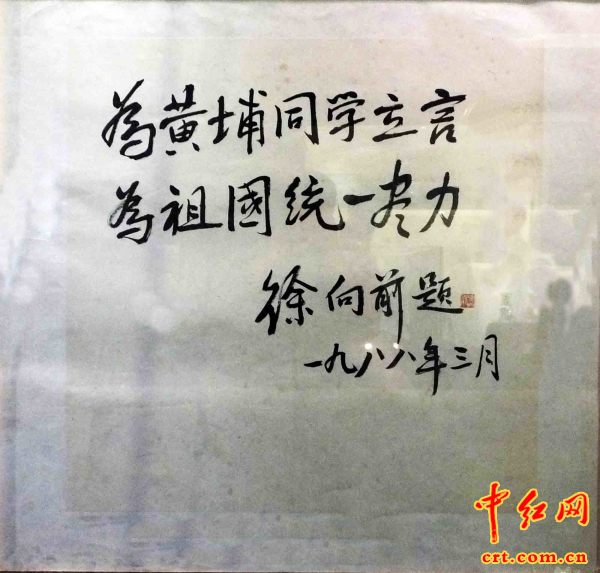 為黄埔同学立言
為祖國统一尽力
徐向前题
一九八八年三月
中红网
crt.com.cn